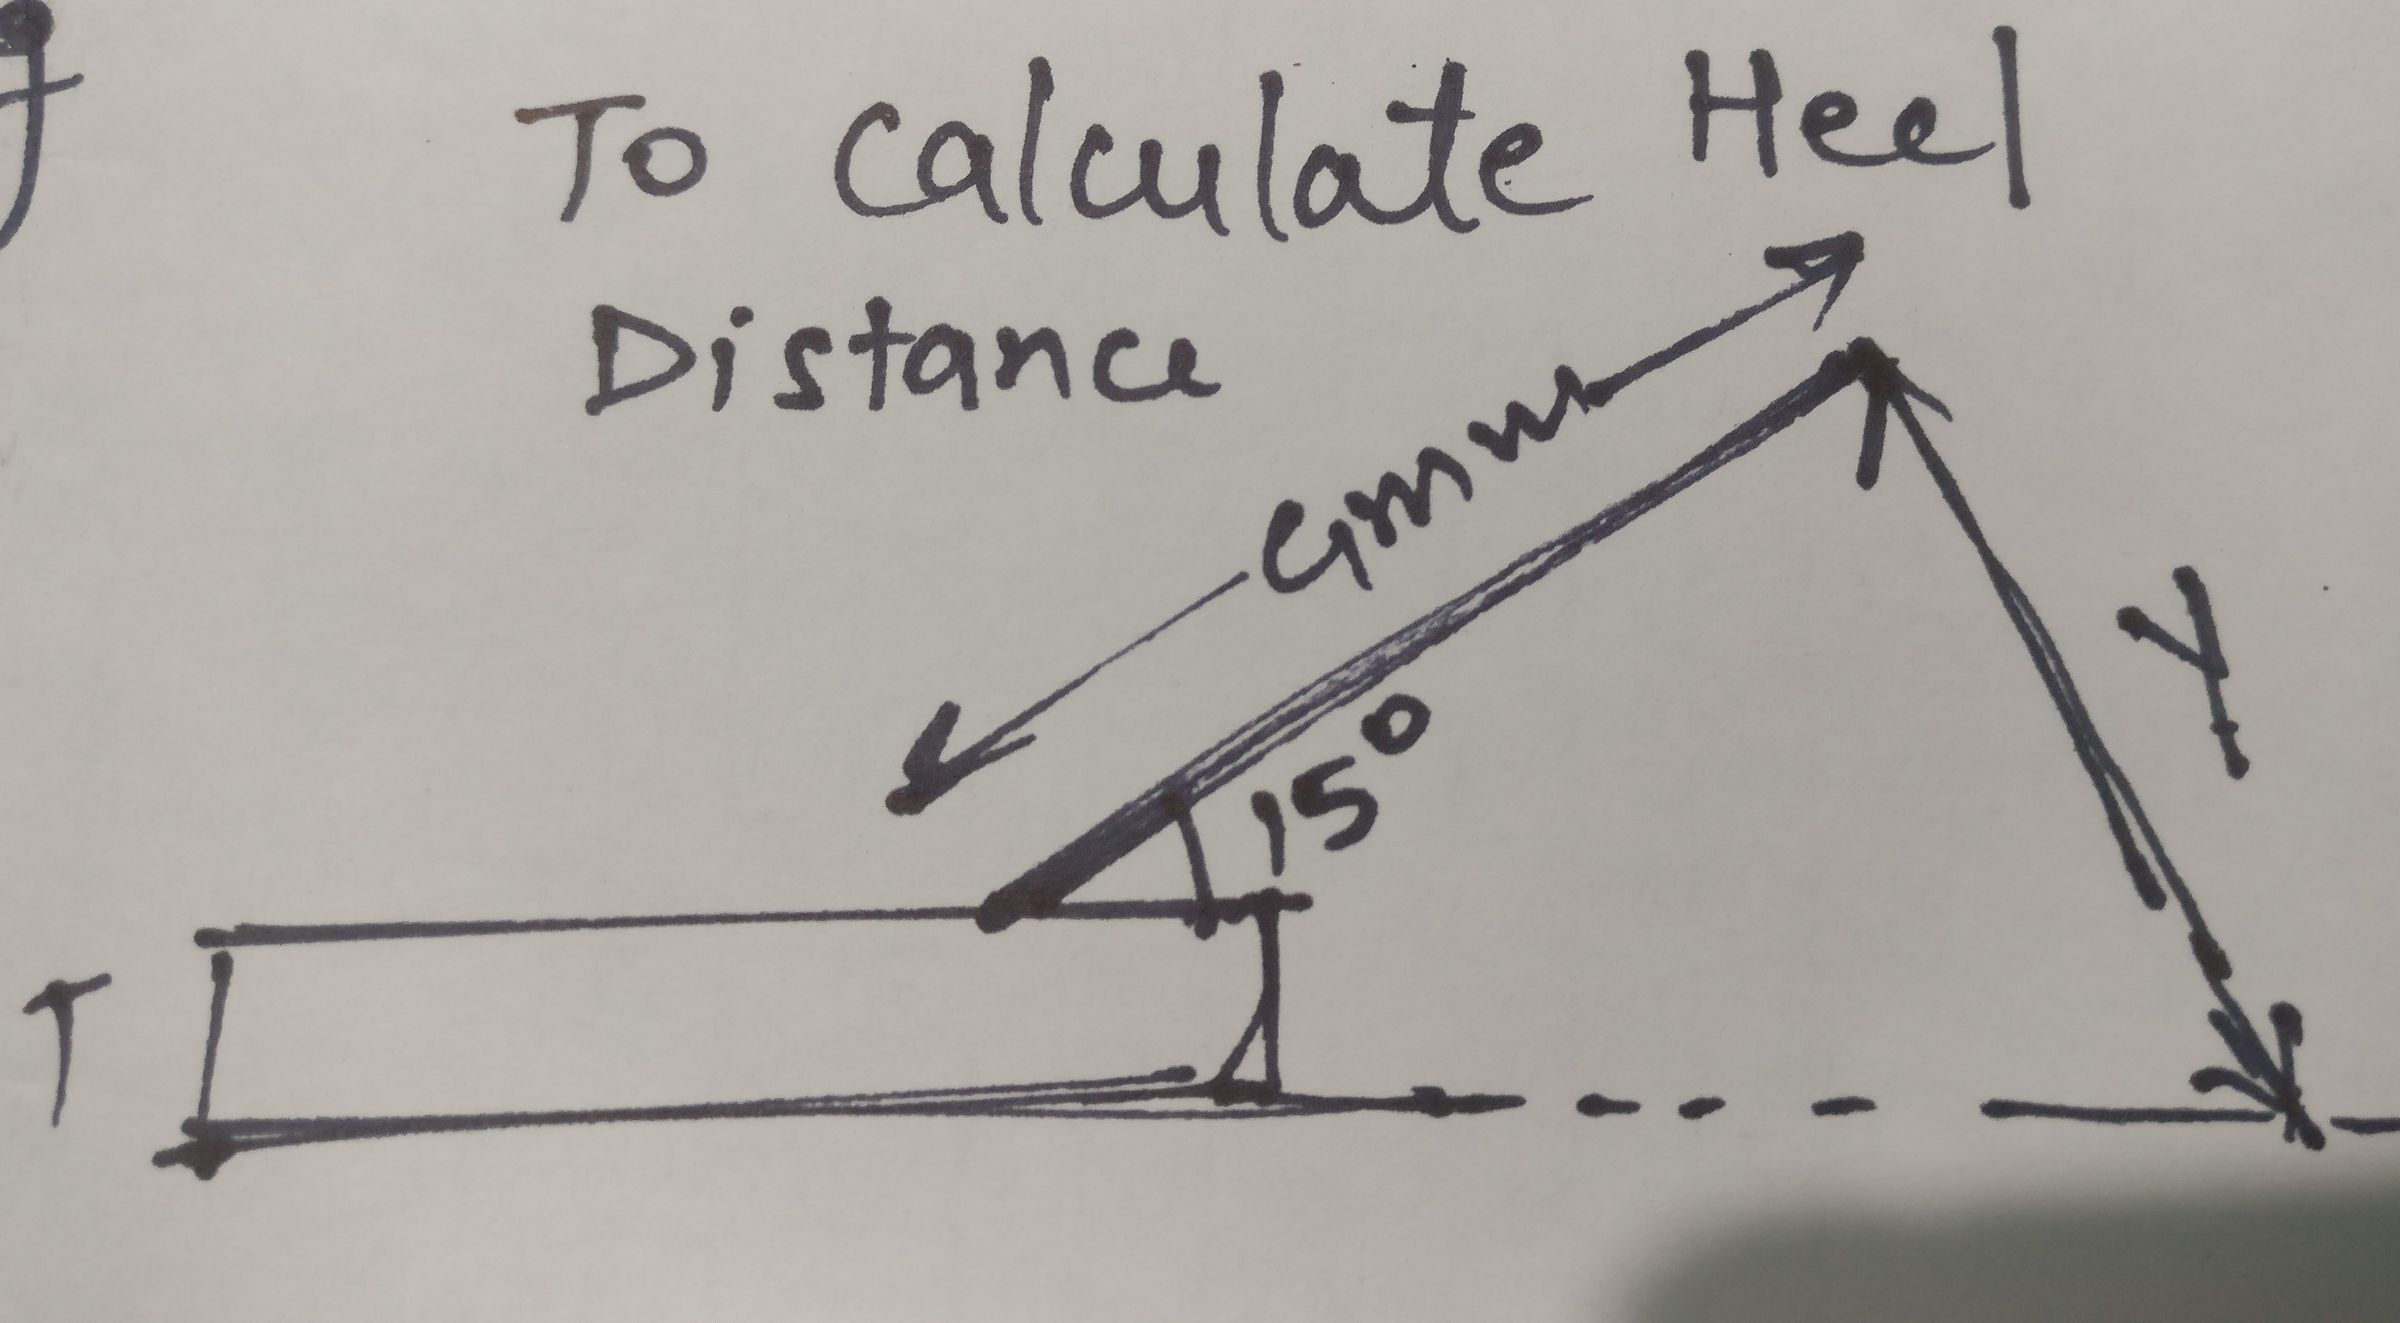 To Calculate Heel
Distance
15°
Y
T